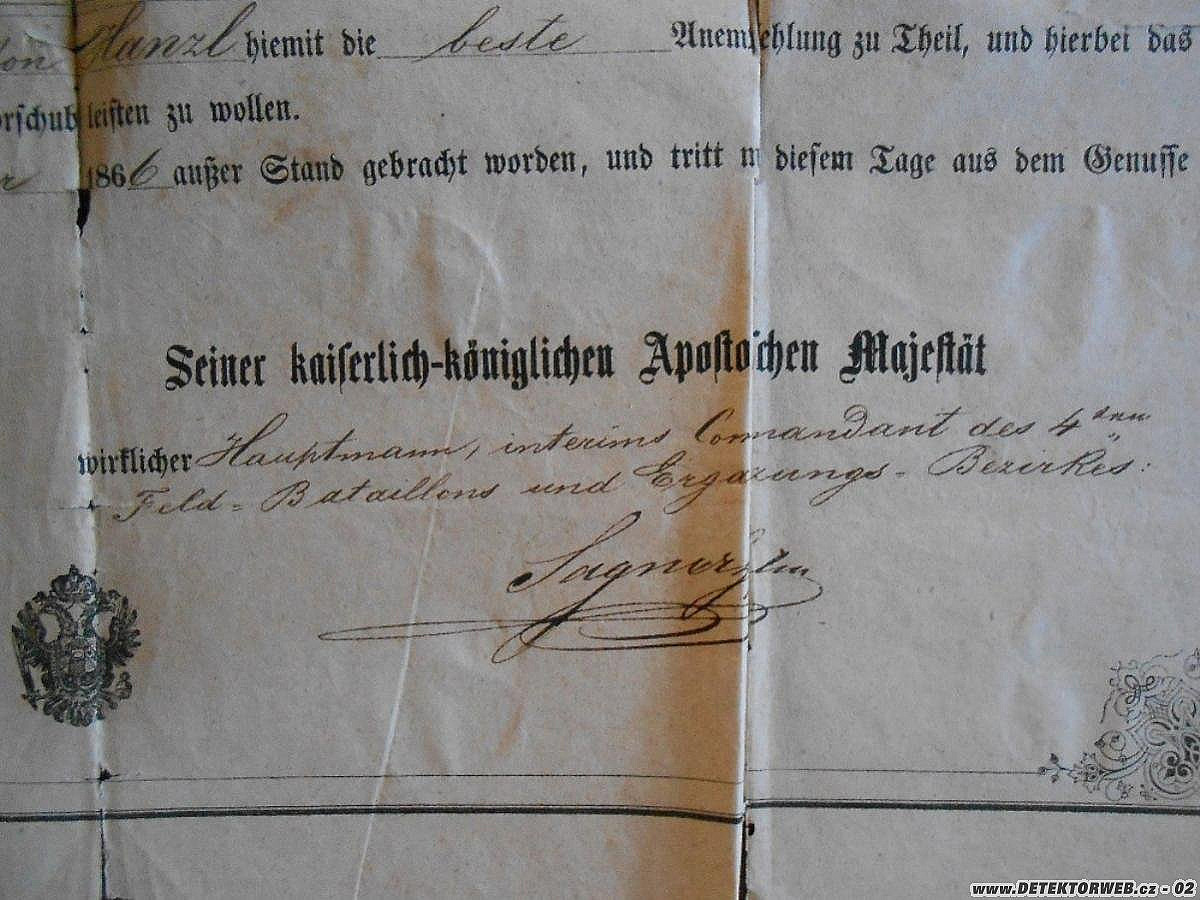 Hanzl hiemit die beste Anempfehlung zu Theil, und hierbei das
orschub leisten zu wollen.
r 1866 außer Stand gebracht worden, und tritt diesem Tage aus dem Genusse
Seiner kaiserlich-königlichen Aposto'chen Majestät
wirklicher Hauptmann, interims Commandant des 4ten
Feld-Bataillons und Ergäzungs-Bezirkes:
www.DETEKTORWEB.cz - 02